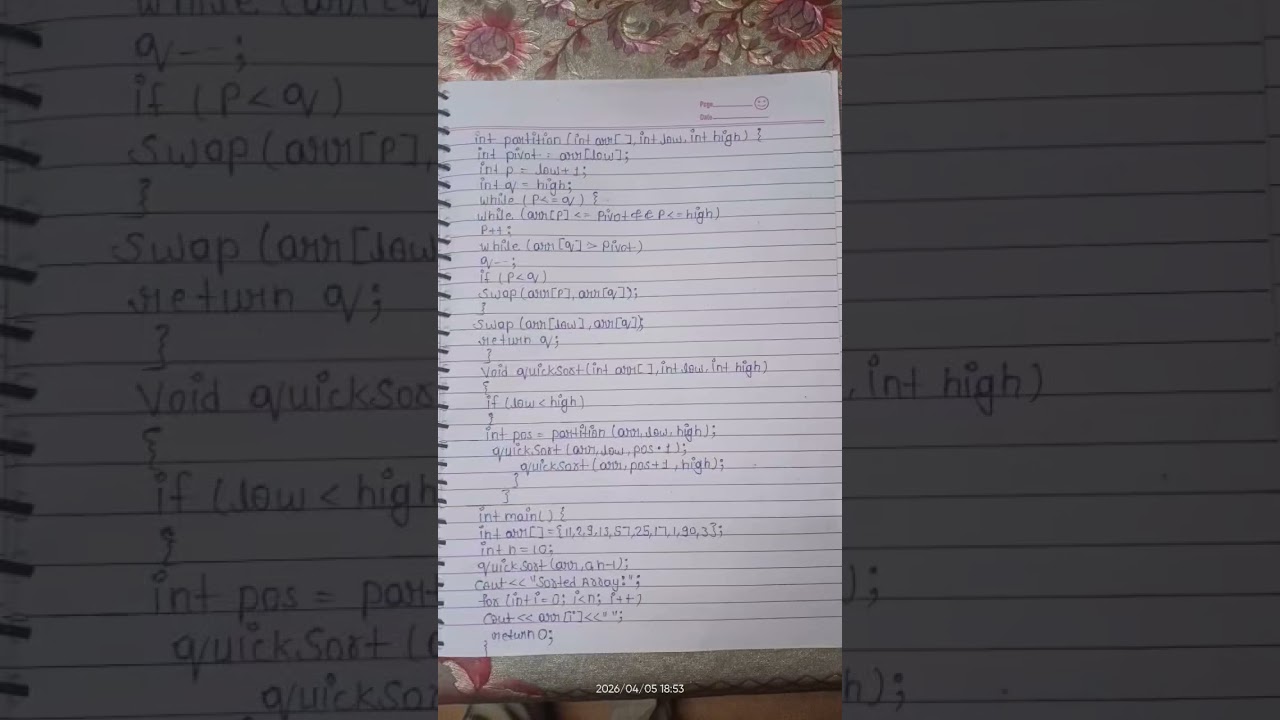 Page
Date
int partition (int arr[ ], int low, int high) {
int pivot = arr[low];
int p = low + 1;
int q = high;
while (P<= q) {
while (arr[P] <= Pivot && P<= high)
P++;
while (arr[q] > Pivot)
q--;
if (P<q)
Swap (arr[P], arr[q]);
}
Swap (arr[low], arr[q]);
return q;
}
Void quickSort (int arr[ ], int low, int high)
{
if (low < high)
{
int pos = partition (arr, low, high);
quickSort (arr, low, pos - 1);
quickSort (arr, pos+1, high);
}
}
int main() {
int arr[] = {11,2,9,13,57,25,17,1,90,3};
int n = 10;
quickSort (arr, 0, n-1);
Cout << "Sorted Array:";
for (int i = 0; i<n; i++)
Cout << arr[i] << " ";
return 0;
}
2026/04/05 18:53